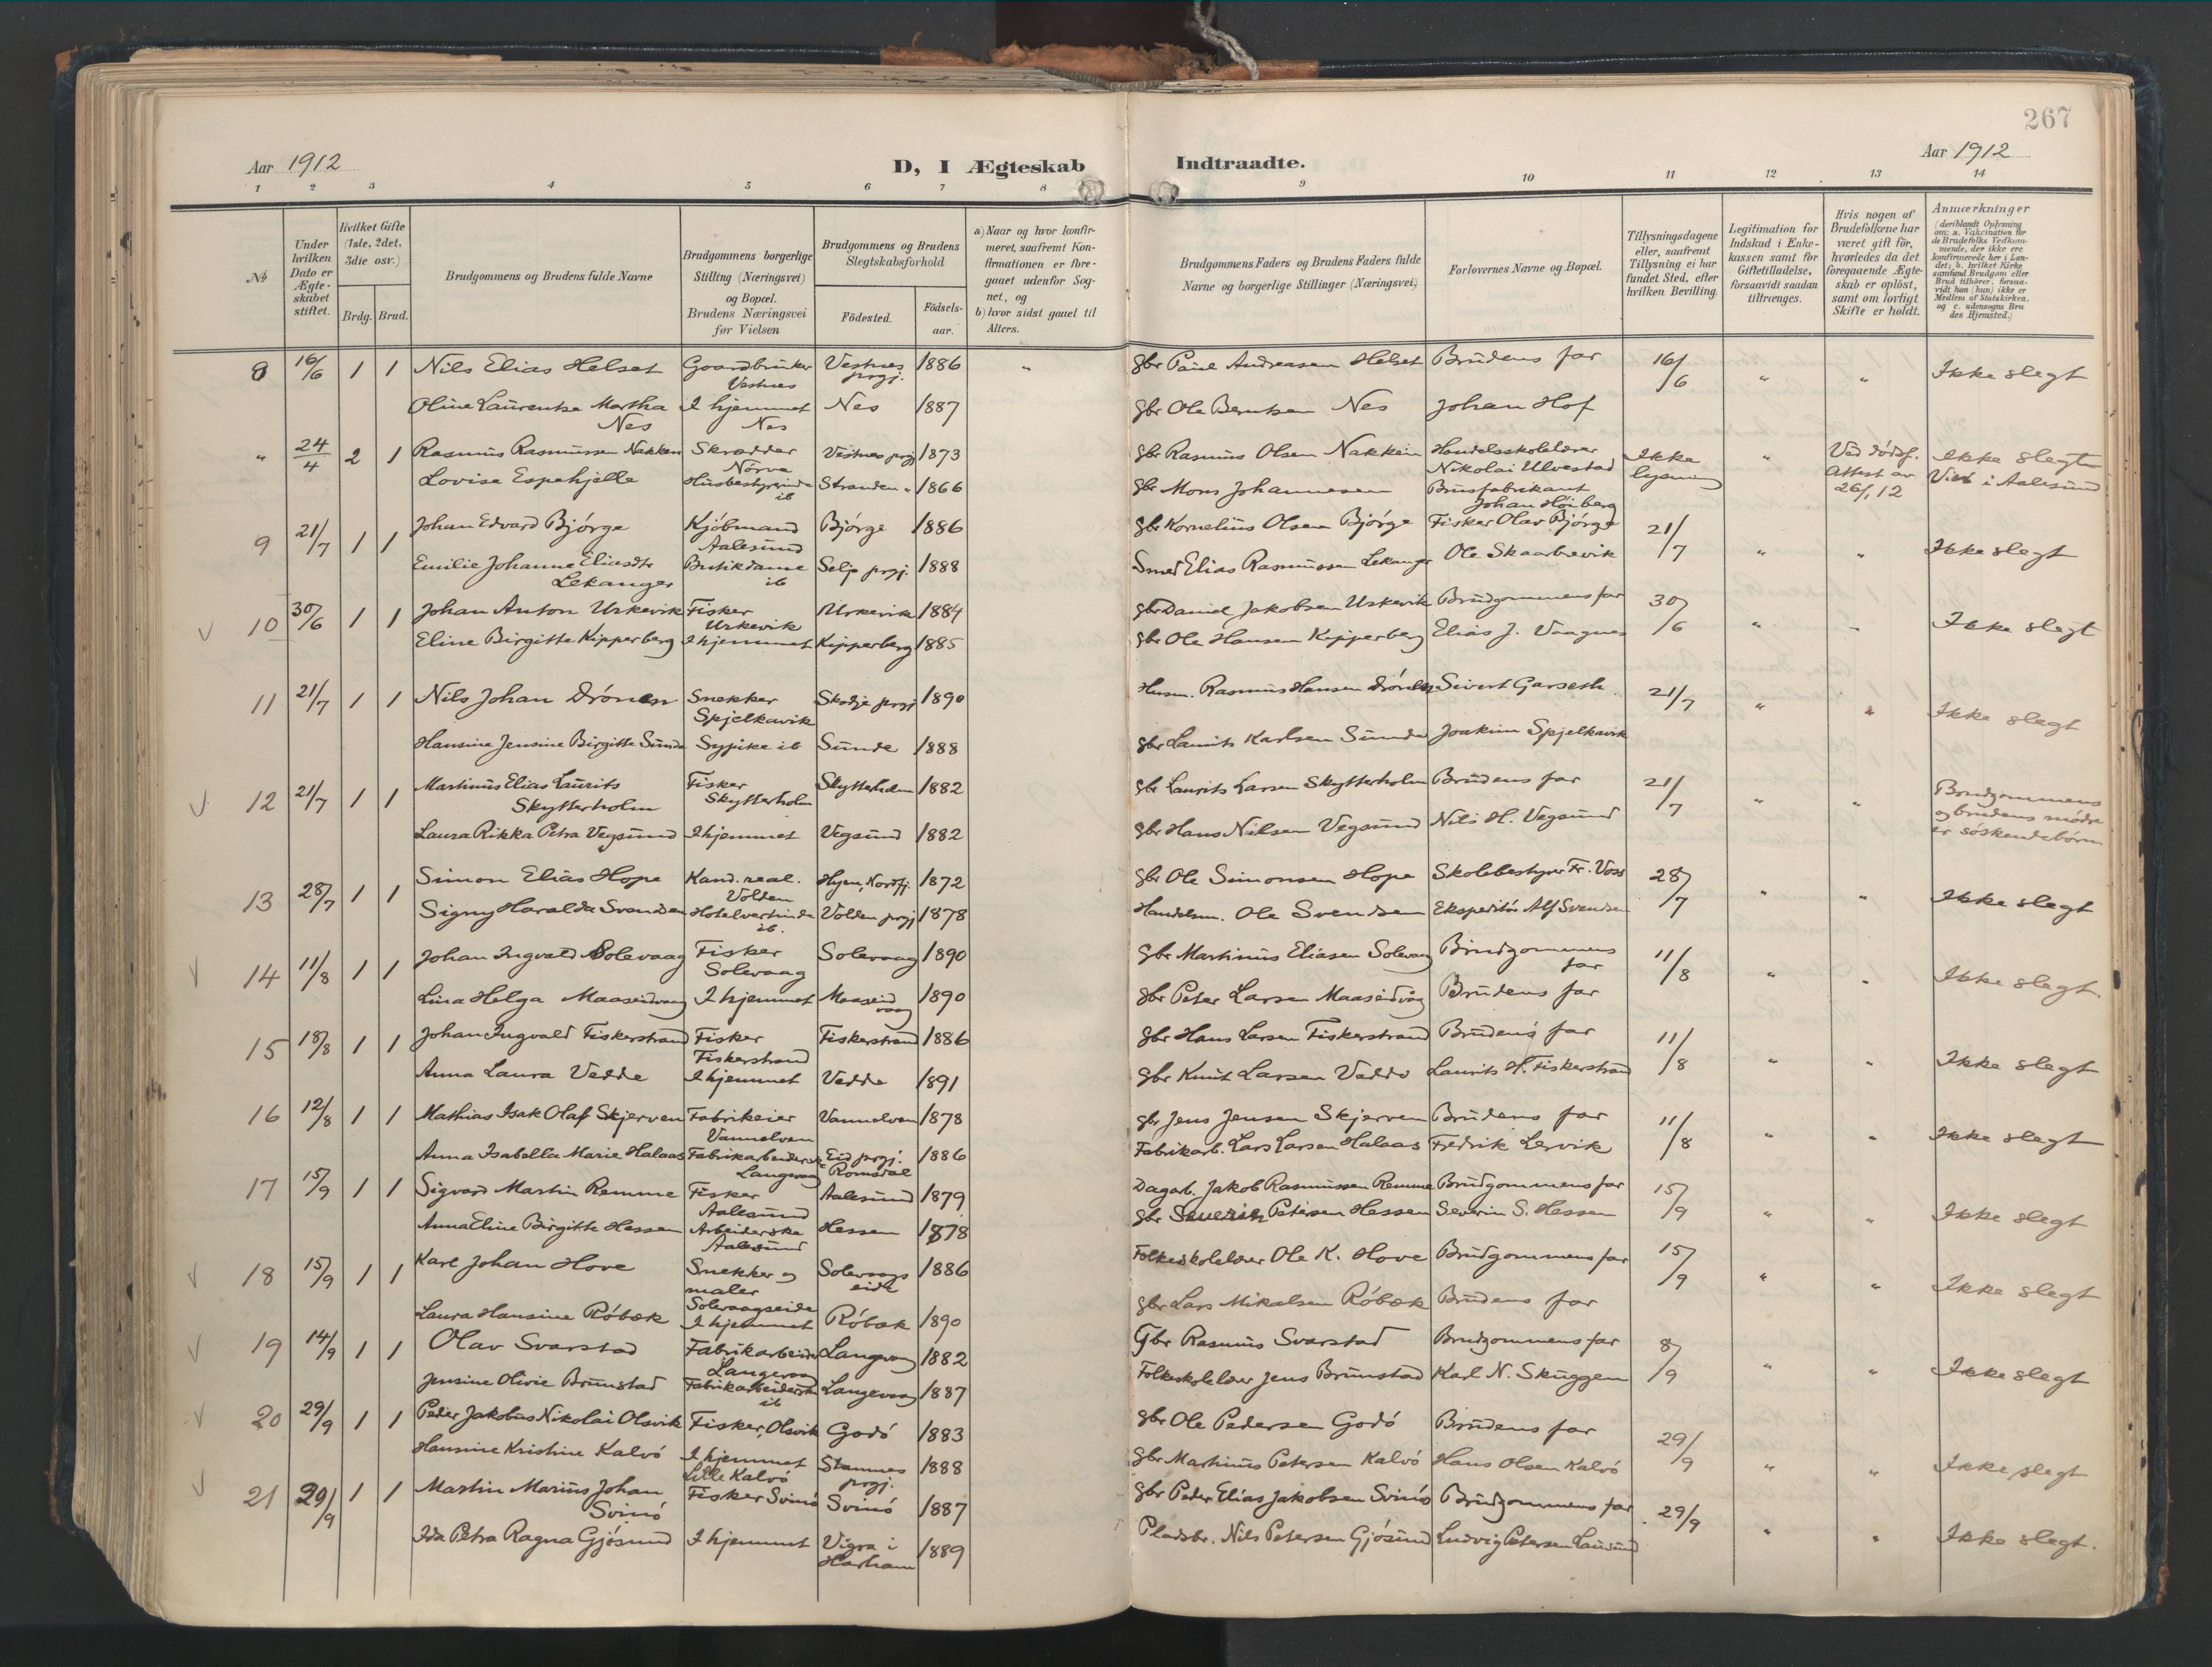 267
Aar 1912
D, I Ægteskab
Indtraadte.
Aar 1912
1 2 3 4 5 6 7 8 9 10 11 12 13 14
No.
Under hvilken Dato er Ægteskabet stiftet.
Hvilket Gifte (1ste, 2det, 3die osv.)
Brdg. Brud.
Brudgommens og Brudens fulde Navne
Brudgommens borgerlige Stilling (Næringsvei) og Bopæl. Brudens Næringsvei før Vielsen
Brudgommens og Brudens Slegtskabsforhold
Födested.
Födsels-aar.
a) Naar og hvor konfirmeret, saafremt Konfirmationen er foregaaet udenfor Sognet, og
b) hvor sidst gaaet til Alters.
Brudgommens Faders og Brudens Faders fulde Navne og borgerlige Stillinger (Næringsvei)
Forlovernes Navne og Bopæl.
Tillysningsdagene eller, saafremt Tillysning ei har fundet Sted, efter hvilken Bevilling.
Legitimation for Indskud i Enkekassen samt for Giftetilladelse, forsaavidt saadan tiltrænges.
Hvis nogen af Brudefolkene har været gift før, hvorledes da det foregaaende Ægteskab er oplöst, samt om lovligt Skifte er holdt.
Anmærkninger (deriblandt Oplysning om: a. Vakcination for de Brudefolks Vedkommende, der ikke ere konfirmerede her i Landet; b. hvilket Kirkesamfund Brudgom eller Brud tilhörer, forsaavidt han (hun) ikke er Medlem af Statskirken, og c. udensogns Brudes Hjemsted.)
8 16/6 1 1 Nils Elias Helset Gaardbruker Vestnes Vestnes prgj. 1886 " gbr Paul Andreasen Helset Brudens far 16/6 " " Ikke slegt
Oline Laurentse Martha Nes I hjemmet Nes Nes 1887 gbr Ole Berntsen Nes Johan Hof
" 24/4 2 1 Rasmus Rasmussen Nakken Skrædder Nørve Vestnes prgj 1873 gbr Rasmus Olsen Nakken Handelsskolelærer Nikolai Ulvestad Ikke lysning " Ved dødsf. Attest av 26/, 12 Ikke slegt Viet i Aalesund
Lovise Espehjelle Husbestyrerinde ib Stranden " 1866 gbr Mons Johannesen Brusfabrikant Johan Høiberg
9 21/7 1 1 Johan Edvard Bjórge Kjóbmand Aalesund Bjórge 1886 gbr Kornelius Olsen Bjórge Fisker Olav Bjórge 21/7 " " Ikke slegt
Emilie Johanne Eliasdtr Lekanger Butikdame ib Selje prgj. 1888 Smed Elias Rasmussen Lekanger Ole Skaarbrevik
10 30/6 1 1 Johan Anton Urkevik Fisker Urkevik Urkevik 1884 gbr Daniel Jakobsen Urkevik Brudgommens far 30/6 " " Ikke slegt
Eline Birgitte Kipperberg I hjemmet Kipperberg 1885 gbr Ole Hansen Kipperberg Elias J. Vaagnes
11 21/7 1 1 Nils Johan Drónen Snekker Spjelkavik Skodje prgj 1890 Husm. Rasmus Hansen Drónen Sivert Garseth. 21/7 " " Ikke slegt
Hansine Jensine Birgitte Sunde Sypike ib Sunde 1888 gbr Laurits Karlsen Sunde Joakim Spjelkavik
12 21/7 1 1 Martinus Elias Laurits Skytterholm Fisker Skytterholm Skytterholm 1882 gbr Laurits Larsen Skytterholm Brudens far 21/7 " " Brudgommens og brudens mødre er søskendebörn
Laura Rikka Petra Vegsund I hjemmet Vegsund 1882 gbr Hans Nilsen Vegsund Nils H. Vegsund
13 28/7 1 1 Simon Elias Hope Kand. real. Volden Hyen, Nordfj. 1872 gbr Ole Simonsen Hope Skolebestyrer Fr. Voss 28/7 " " Ikke slegt
Signy Haralda Svendsen Hotelvertinde ib. Volden prgj 1878 Handelsm. Ole Svendsen Ekspeditór Alf Svendsen
14 11/8 1 1 Johan Ingvald Solevaag Fisker Solevaag Solevaag 1890 gbr Martinus Eliasen Solevaag Brudgommens far 11/8 " " Ikke slegt.
Lina Helga Maaseidvaag I hjemmet Maaseidvaag 1890 gbr Peter Larsen Maaseidvåg Brudens far
15 18/8 1 1 Johan Ingvald Fiskerstrand Fisker Fiskerstrand Fiskerstrand 1886 gbr Hans Larsen Fiskerstrand Brudens far 11/8 " " Ikke slegt
Anna Laura Vedde I hjemmet Vedde 1891 gbr Knut Larsen Vedde Laurits H. Fiskerstrand
16 12/8 1 1 Mathias Isak Olaf Skjerven Fabrikeier Vannelven Vannelven 1878 gbr Jens Jensen Skjerven Brudens far 11/8 " " Ikke slegt
Anna Isabella Marie Halaas Fabrikarbeiderske Langevaag Eid prgj. Romsdal 1886 Fabrikarb. Lars Larsen Halaas Fredrik Lervik
17 15/9 1 1 Sigvard Martin Remme Fisker Aalesund Aalesund 1879 Dagarb. Jakob Rasmussen Remme Brudgommens far 15/9 " " Ikke slegt
Anna Eline Birgitte Hessen Arbeiderske Aalesund Hessen 1878 gbr Severin Petersen Hessen Severin S. Hessen
18 15/9 1 1 Karl Johan Hove Snekker og maler Solevaagseide Solevaags eide 1886 Folkeskolelærer Ole K. Hove Brudgommens far 15/9 " " Ikke slegt
Laura Hansine Róbæk I hjemmet Róbæk 1890 gbr Lars Mikalsen Róbæk Brudens far
19 14/9 1 1 Olav Svarstad Fabrikarbeider Langevaag Langevaag 1882 Gbr Rasmus Svarstad Brudgommens far 8/9 " " Ikke slegt
Jensine Olivie Brunstad Fabrikarbeiderske ib Langevaag 1887 Folkeskolelærer Jens Brunstad Karl N. Skuggen
20 29/9 1 1 Peder Jakobus Nikolai Olsvik Fisker, Olsvik Godó 1883 gbr Ole Pedersen Godó Brudens far 29/9 " " Ikke slegt
Hansine Kristine Kalvó I hjemmet Lille Kalvó Stamnes prgj. 1888 gbr Martinus Petersen Kalvó Hans Olsen Kalvó
21 29/9 1 1 Martin Marius Johan Svinó Fisker Svinó Svinó 1887 gbr Peder Elias Jakobsen Svinó Brudgommens far 29/9 " " Ikke slegt.
Ida Petra Ragna Gjósund I hjemmet Vigra i Harham 1889 Pladsbr. Nils Petersen Gjósund Ludvig Petersen